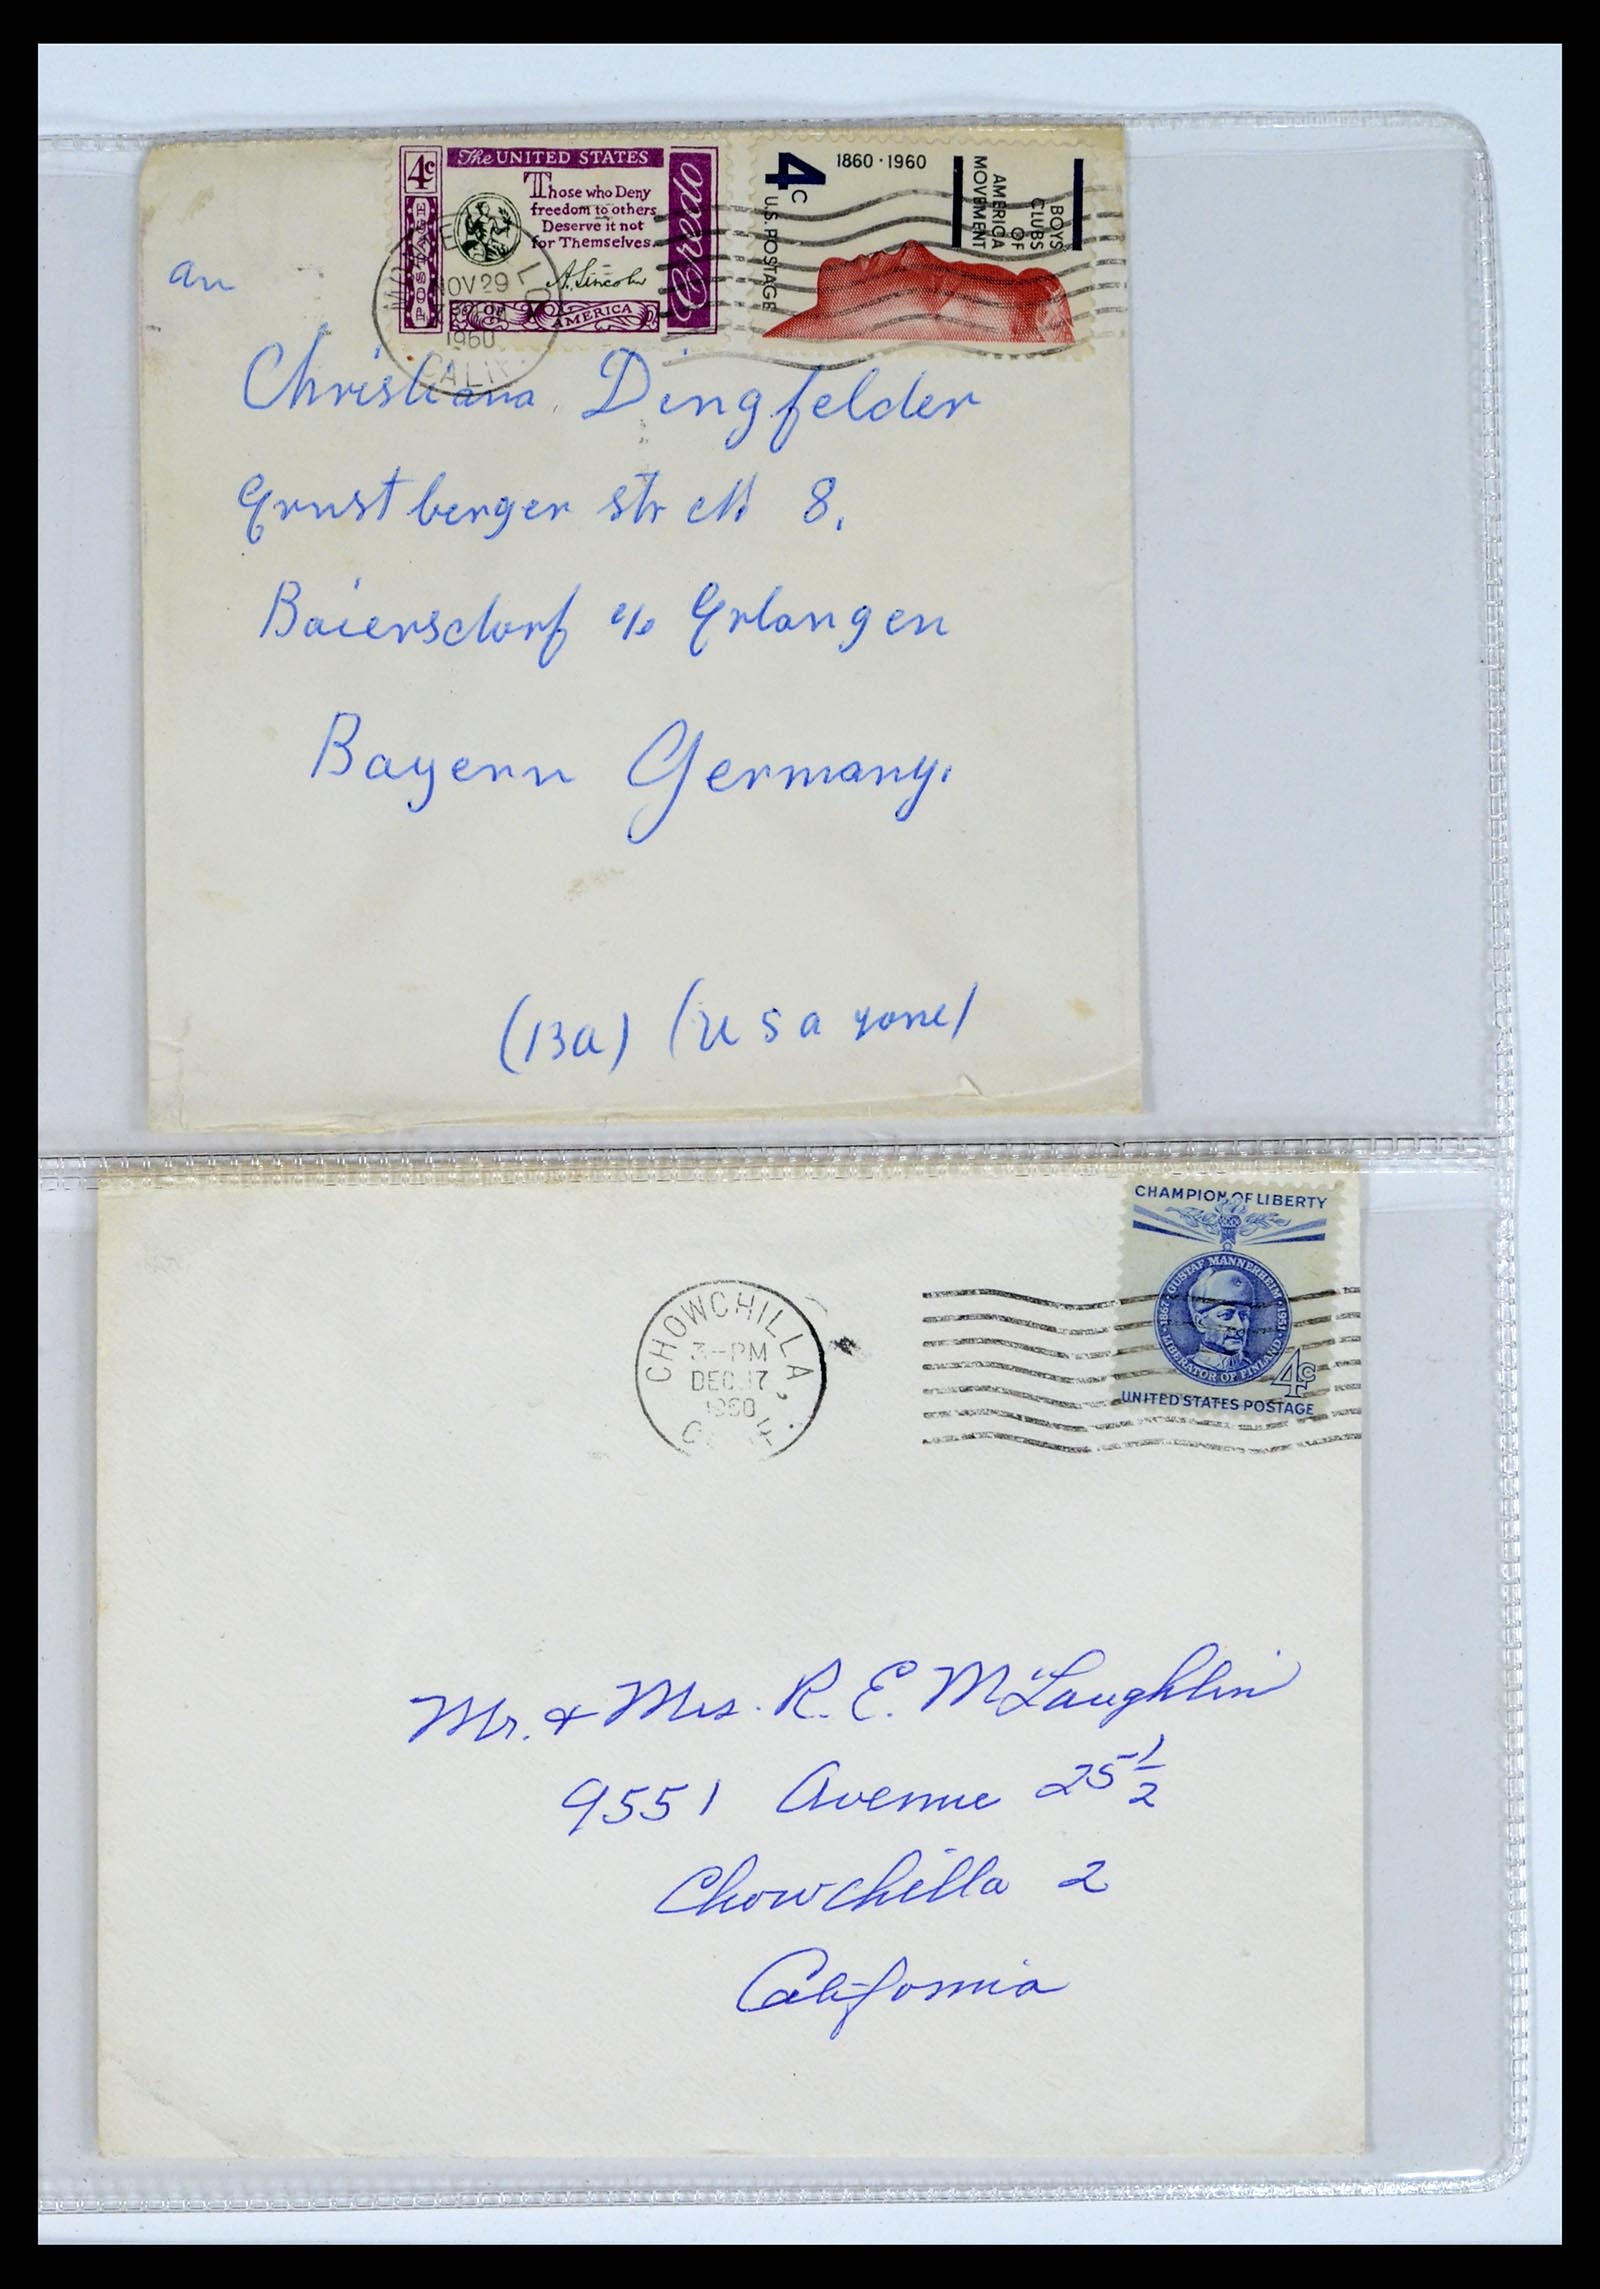 4c
The UNITED STATES
Those who Deny
freedom to others
Deserve it not
for Themselves.
A. Lincoln
POSTAGE
OF
AMERICA
Credo
NOV 29
1960
CALIF.
4c
U.S. POSTAGE
1860 · 1960
BOYS
CLUBS
OF
AMERICA
MOVEMENT
an
Christiana Dingfelder
Ernstberger str 8.
Baiersdorf Erlangen
Bayern Germany.
(13a) (USA zone)
CHAMPION OF LIBERTY
1867 · GUSTAF MANNERHEIM · 1951
LIBERATOR OF FINLAND
4c
UNITED STATES POSTAGE
CHOWCHILLA,
3-PM
DEC 17
1960
Mr. & Mrs. R. E. McLaughlin
9551 Avenue 25 1/2
Chowchilla 2
California